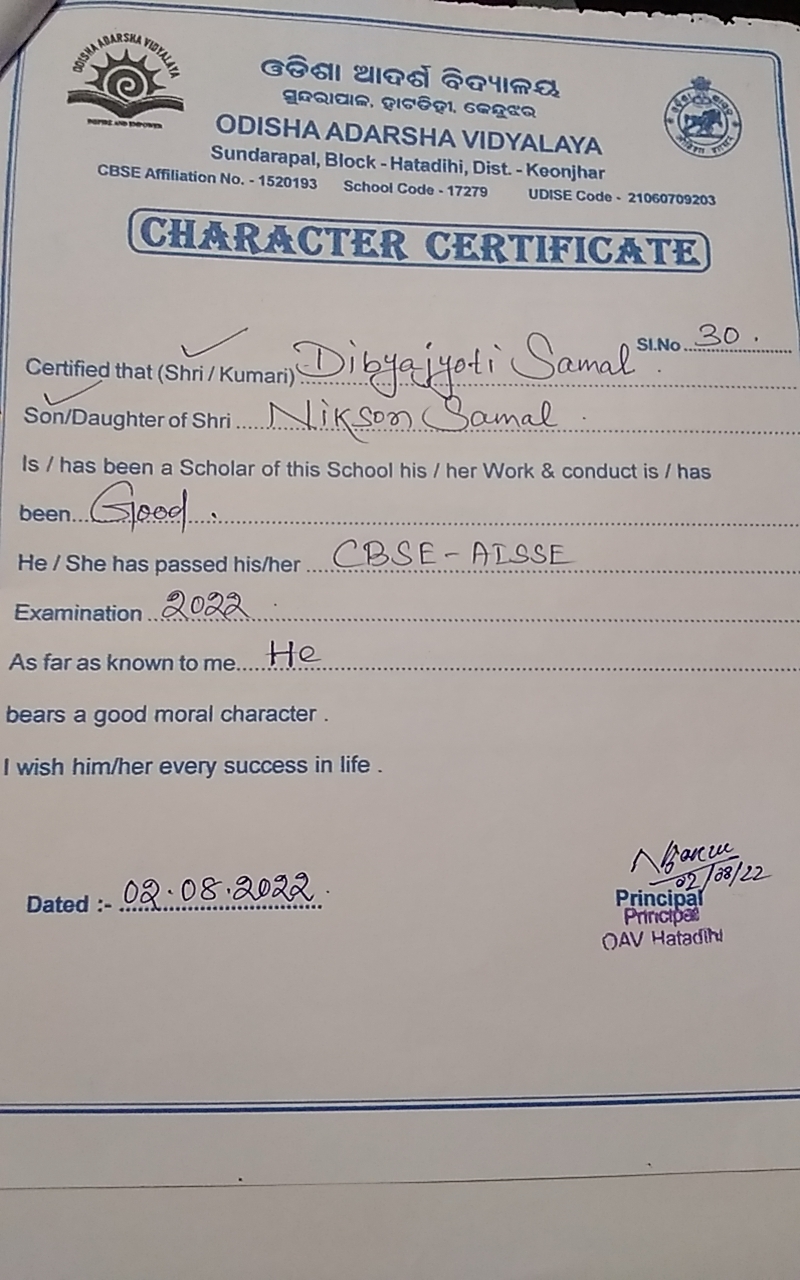 ODISHA ADARSHA VIDYALAYA
INSPIRE AND EMPOWER
ଓଡିଶା ଆଦର୍ଶ ବିଦ୍ୟାଳୟ
ସୁନ୍ଦରାପାଳ, ହାଟଡିହୀ, କେନ୍ଦୁଝର
ODISHA ADARSHA VIDYALAYA
Sundarapal, Block - Hatadihi, Dist. - Keonjhar
CBSE Affiliation No. - 1520193 School Code - 17279 UDISE Code - 21060709203
CHARACTER CERTIFICATE
Sl.No 30.
Certified that (Shri / Kumari) Dibyajyoti Samal.
Son/Daughter of Shri Nikson Samal.
Is / has been a Scholar of this School his / her Work & conduct is / has
been Good.
He / She has passed his/her CBSE-AISSE
Examination 2022
As far as known to me He
bears a good moral character .
I wish him/her every success in life .
Dated :- 02.08.2022.
02/08/22
Principal
Principal
OAV Hatadihi